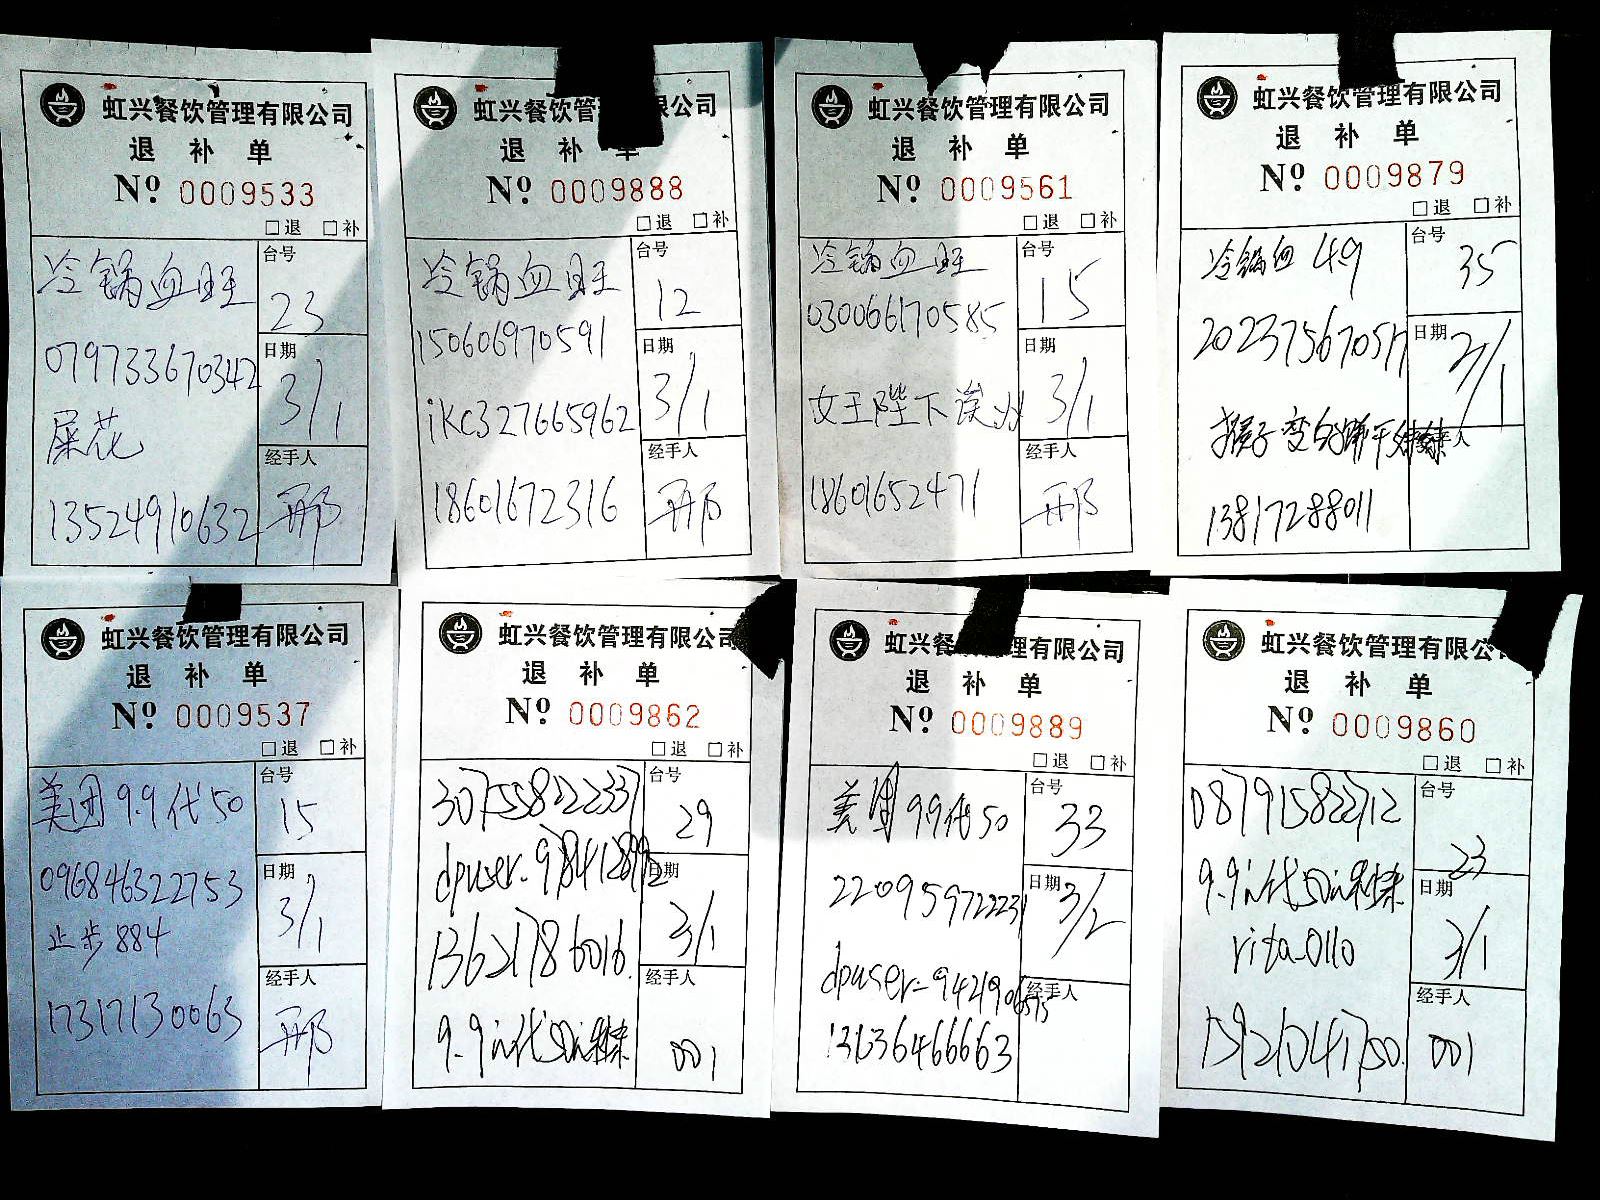 虹兴餐饮管理有限公司
退 补 单
Nº 0009533
□退 □补
冷锅血旺
台号
23
079733670342
日期
3/1
屎花
经手人
13524910632
邢
虹兴餐饮管 限公司
退 补 单
Nº 0009888
□退 □补
冷锅血旺
台号
12
150606970591
日期
3/1
iKC327665962
经手人
18601672316
邢
虹兴餐饮管理有限公司
退 补 单
Nº 0009561
□退 □补
冷锅血旺
台号
15
030066170585
日期
3/1
女王陛下
经手人
18601652471
邢
虹兴餐饮管理有限公司
退 补 单
Nº 0009879
□退 □补
冷锅血 49
台号
35
日期
猴子变
13817288011
虹兴餐饮管理有限公司
退 补 单
Nº 0009537
□退 □补
美团9.9代50
台号
15
096846322753
日期
3/1
止步884
经手人
17317130063
邢
虹兴餐饮管理有限公司
退 补 单
Nº 0009862
□退 □补
307558222337
台号
29
日期
3/1
13621786016.
经手人
9.9代50
001
虹兴餐 理有限公司
退 补 单
Nº 0009889
□退 □补
美团99代50
台号
33
日期
3/2
dpuser-9421906515
经手人
13636466663
虹兴餐饮管理有限公
退 补 单
Nº 0009860
□退 □补
087915822712
台号
23
9.9代50
日期
3/1
rita-0110
经手人
15921041750.
001